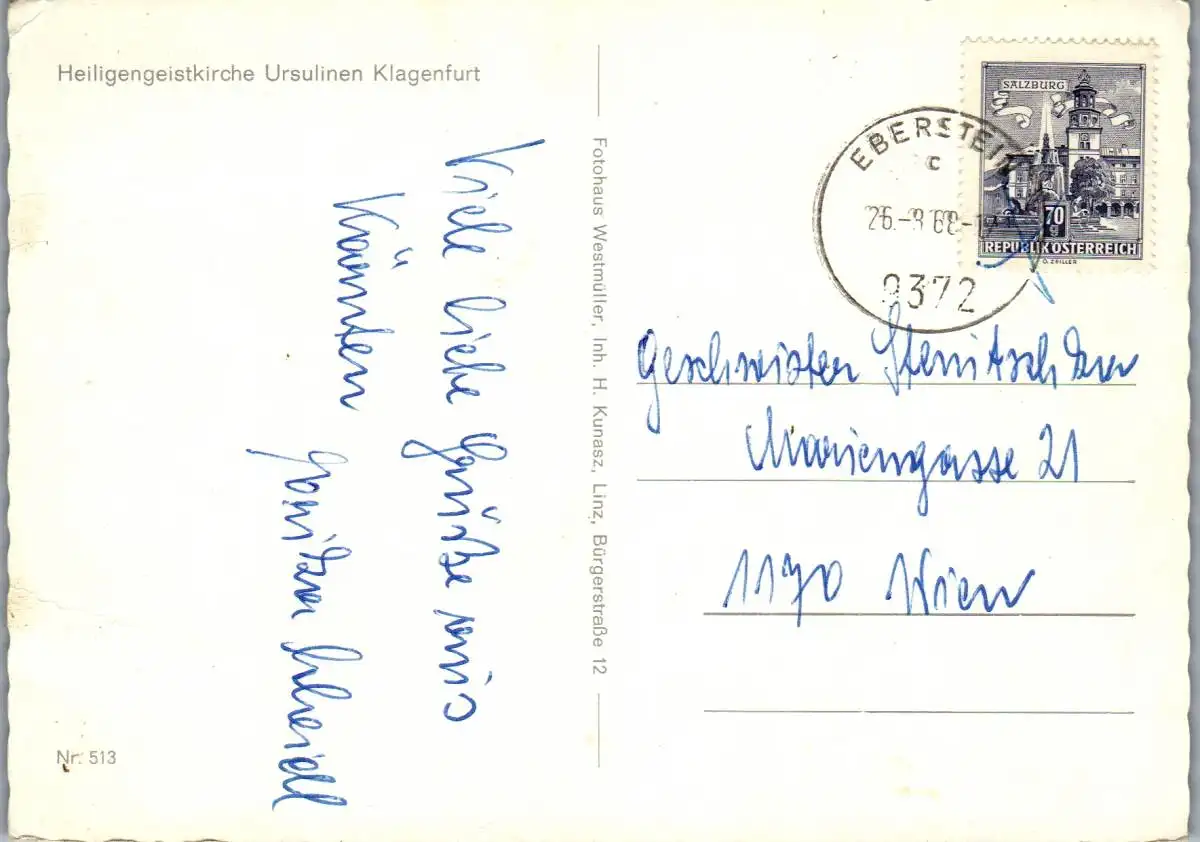 Heiligengeistkirche Ursulinen Klagenfurt
Viele liebe Grüße aus
Kärnten
Scheidl
Nr. 513
Fotohaus Westmüller, Inh. H. Kunasz, Linz, Bürgerstraße 12
SALZBURG
70
g
REPUBLIK ÖSTERREICH
G. ZEILLER
EBERSTEIN
c
9372
Geschwister
Mariengasse 21
1170 Wien